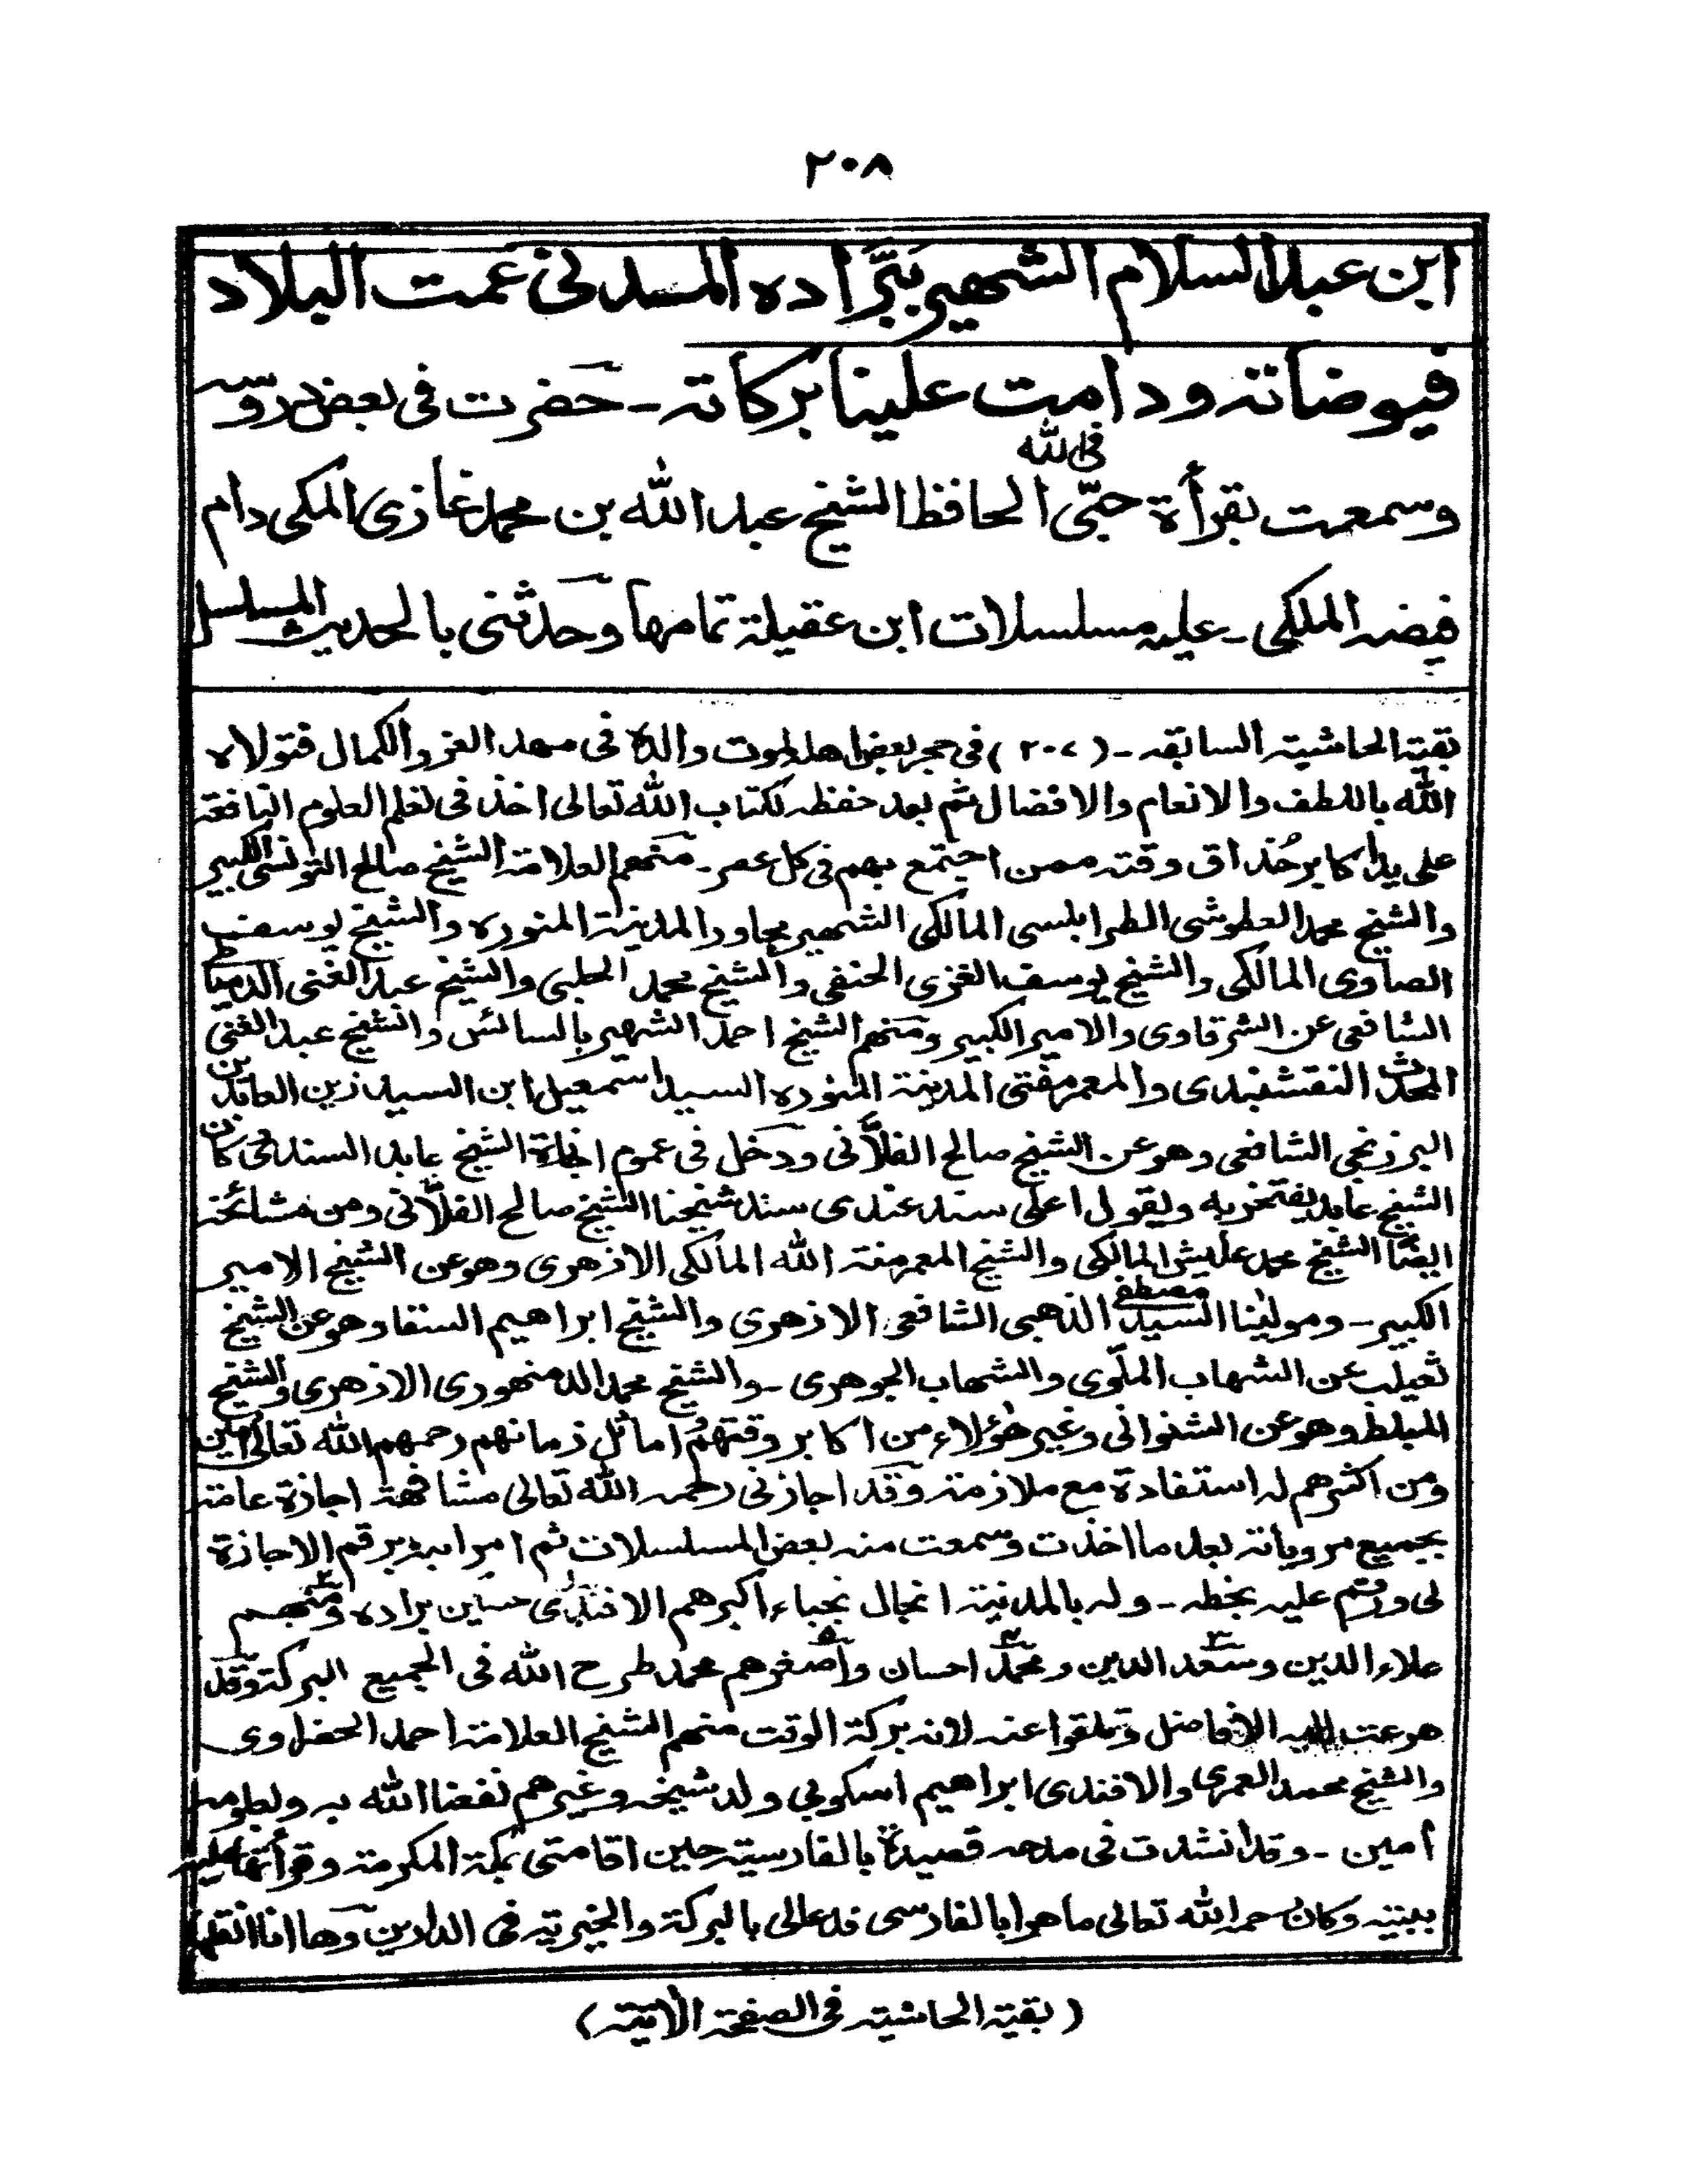 ٢٠٨
ابن عبد السلام الشهير ببَّراده المسدلى عمت البلاد
فيوضاته ودامت علينا بركاته ـ حضرت فى بعض دروسه
فى الله
وسمعت بقرأة حبّى الحافظ الشيخ عبد الله بن محمد غازى المكى دام
فيضه الملكى ـ عليه مسلسلات ابن عقيلة تمامها وحدثنى بالحديث المسلسل
بقية الحاشية السابقه ـ (٢٠٧) فى حجر بعض اهله لموت والده فى مهد العز والكمال فتولاه
الله باللطف والانعام والافضال ثم بعد حفظه لكتاب الله تعالى اخذ فى تعلم العلوم النافعة
على يد اكابر حُذاق وقته ممن اجتمع بهم فى كل عصر ـ منهم العلامة الشيخ صالح التونسى الكبير
والشيخ محمد العطوشى الطرابلسى المالكى الشهير بمجاور المدينة المنوره والشيخ يوسف
الصاوى المالكى والشيخ يوسف الغزى الحنفى والشيخ محمد الحلبى والشيخ عبد الغنى الدمياطى
الشافعى عن الشرقاوى والامير الكبير ومنهم الشيخ احمد الشهير بالسائس والشيخ عبد الغنى
المحدث النقشبندى والمعمر مفتى المدينة المنوره السيد اسمعيل ابن السيد زين العابدين
البرزنجى الشافعى وهو عن الشيخ صالح الفلّانى ودخل فى عموم اجازة الشيخ عابد السندى كان
الشيخ عابد يفتخر به ويقول اعلى سند عندى سند شيخنا الشيخ صالح الفلّانى ومن مشائخه
ايضًا الشيخ محمد عليش المالكى والشيخ المعمر منة الله المالكى الازهرى وهو عن الشيخ الامير
الكبير ـ ومولينا السيد مصطفى الذهبى الشافعى الازهرى والشيخ ابراهيم السقا وهو عن الشيخ
ثعيلب عن الشهاب الملّوى والشهاب الجوهرى ـ والشيخ محمد الدمنهورى الازهرى والشيخ
المبلط وهو عن الشنوانى وغير هؤلاء من اكابر وقتهم اماثل زمانهم رحمهم الله تعالى امين
ومن اكثرهم له استفادة مع ملازمته وقد اجازنى رحمه الله تعالى مشافهة اجازة عامة
بجميع مروياته بعد ما اخذت وسمعت منه بعض المسلسلات ثم امر ابنه برقم الاجازة
لى ورقم عليه بخطه ـ وله بالمدينة انجال نجباء اكبرهم الافندى حسين براده ومنهم
علاء الدين وسعد الدين ومحمد احسان واصغرهم محمد طرح الله فى الجميع البركة وقد
هرعت اليه الافاضل وتلقوا عنه لانه بركة الوقت منهم الشيخ العلامة احمد الحضراوى
والشيخ محمد العمرى والافندى ابراهيم اسكوبى ولد شيخه وغيرهم نفعنا الله به وبعلومه
امين ـ وقد انشدت فى مدحه قصيدة بالفارسية حين اقامتى بمكة المكرمة وقرأتها عليه
ببيته وكان رحمه الله تعالى ماهرا بالفارسى فدعالى بالبركة والخيرية فى الدارين وها انا انقلها
(بقية الحاشية فى الصفحة الأتية)